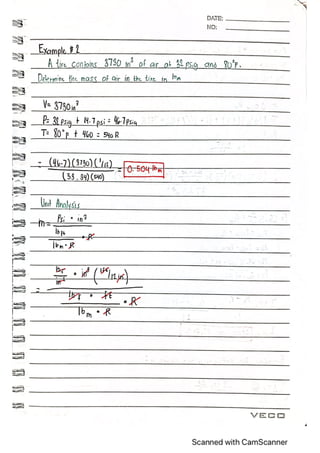 DATE:
NO:
Example # 2
A tire contains 3730 in³ of air at 32 psig and 80°F.
Determine the mass of air in the tire in lbm
V= 3730 in³
P= 32 psig + 14.7 psi = 46.7 psia
T= 80°F + 460 = 540 R
= (46.7)(3730)(1/12) = 0.504 lbm
(53.34)(540)
Unit Analysis
m= Psi • in³
lb ft
lbm • R • R
= lbf
in² • in³ (1ft/12in)
lbf • ft
lbm • R • R
VECO
Scanned with CamScanner